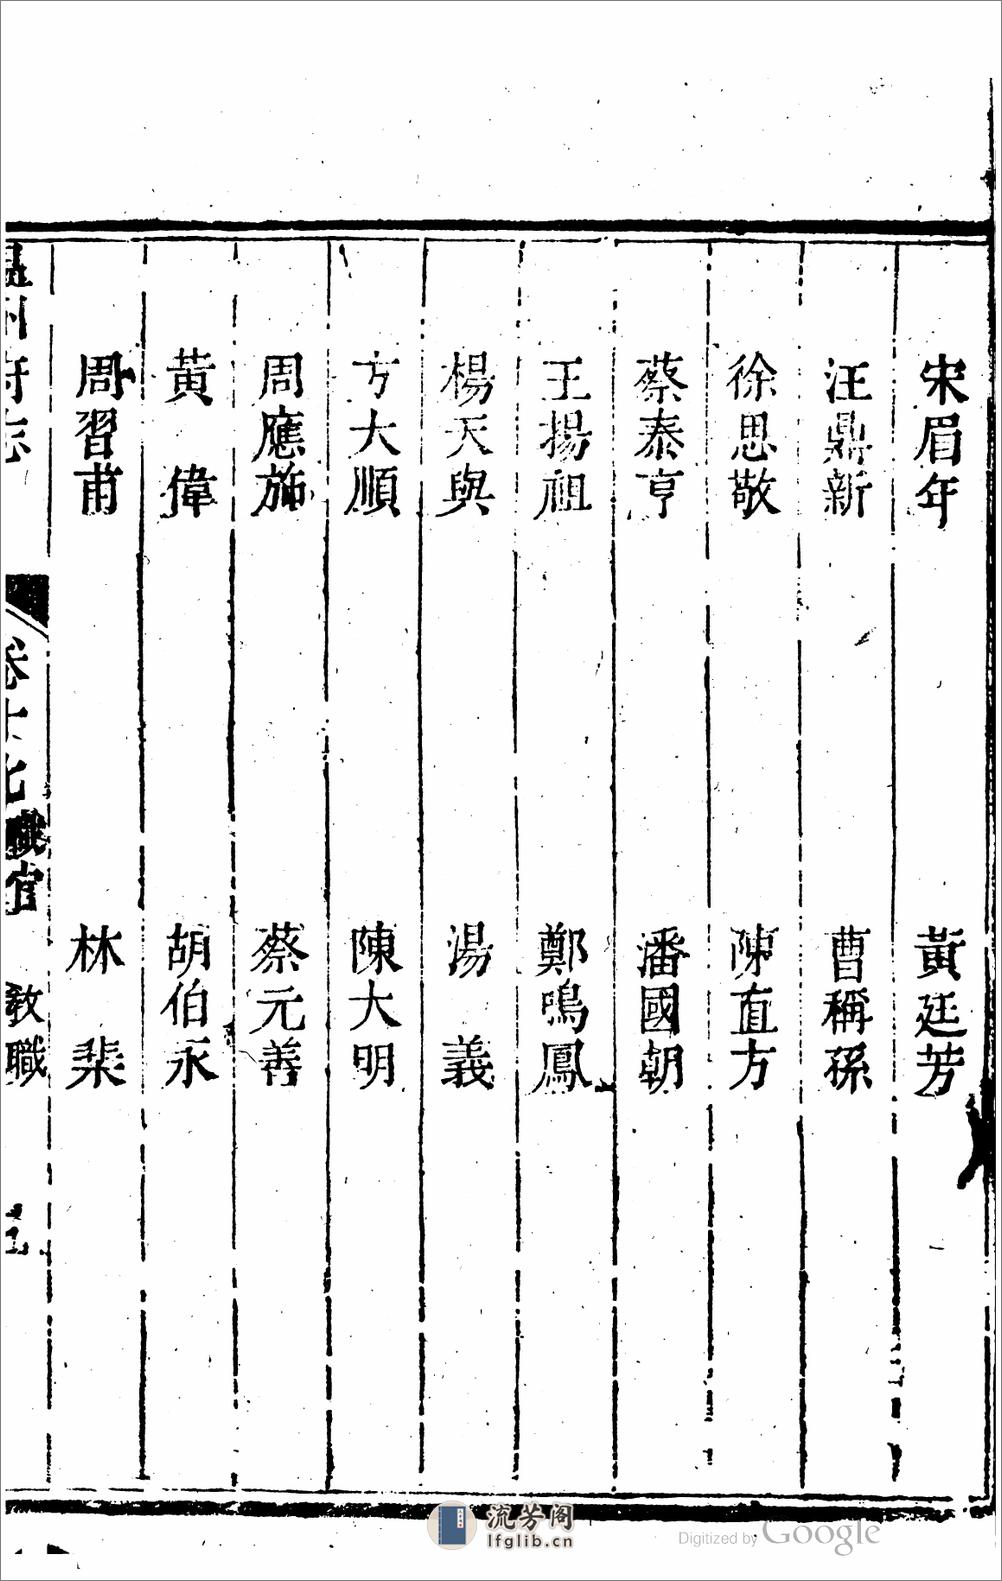 宋眉年 黃廷芳
汪鼎新 曹稱孫
徐思敬 陳直方
蔡泰亨 潘國朝
王揚祖 鄭鳴鳳
楊天與 湯義
方大順 陳大明
周應施 蔡元善
黃偉 胡伯永
周習甫 林棐
溫州府志 卷十七 職官 教職 五
流芳阁
lfglib.cn
Digitized by Google